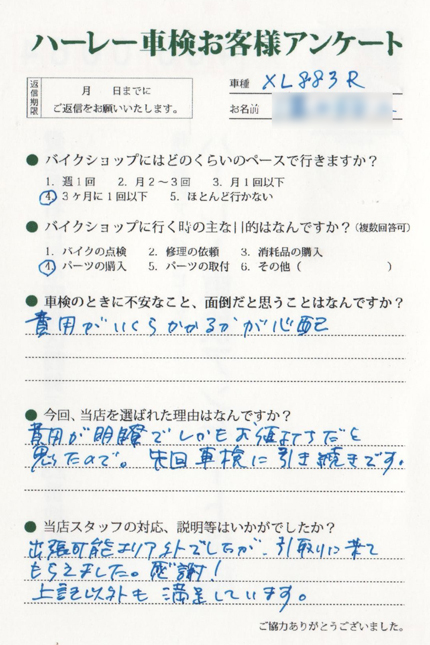 ハーレー車検お客様アンケート
返信期限
月　　日までに
ご返信をお願いいたします。
車種 XL883R
お名前
● バイクショップにはどのくらいのペースで行きますか?
1. 週1回　2. 月2〜3回　3. 月1回以下
4. 3ヶ月に1回以下　5. ほとんど行かない
● バイクショップに行く時の主な目的はなんですか?(複数回答可)
1. バイクの点検　2. 修理の依頼　3. 消耗品の購入
4. パーツの購入　5. パーツの取付　6. その他（　　　　　）
● 車検のときに不安なこと、面倒だと思うことはなんですか?
費用がいくらかかるかが心配
● 今回、当店を選ばれた理由はなんですか?
費用が明瞭でしかもお値打ちだと
思ったので。先回車検に引き続きです。
● 当店スタッフの対応、説明等はいかがでしたか?
出張可能エリア外でしたが、引取りに来て
もらえました。感謝!
上記以外も満足しています。
ご協力ありがとうございました。